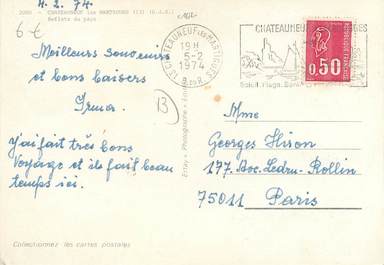 4.2.74.
CHATEAUNEUF les MARTIGUES (13)
Reflets du pays
6 €
Meilleurs souvenirs
et bons baisers
Irma.
J'ai fait très bons
Voyage et ils fait beau
temps ici.
Collectionnez les cartes postales
13
13 CHATEAUNEUF les MARTIGUES
19 H
5-2
1974
B. DU R.
CHATEAUNEUF
Soleil. Plage.
0,50
REPUBLIQUE FRANCAISE
Mme
Georges Hiron
177. Avc. Ledru-Rollin
75011 Paris